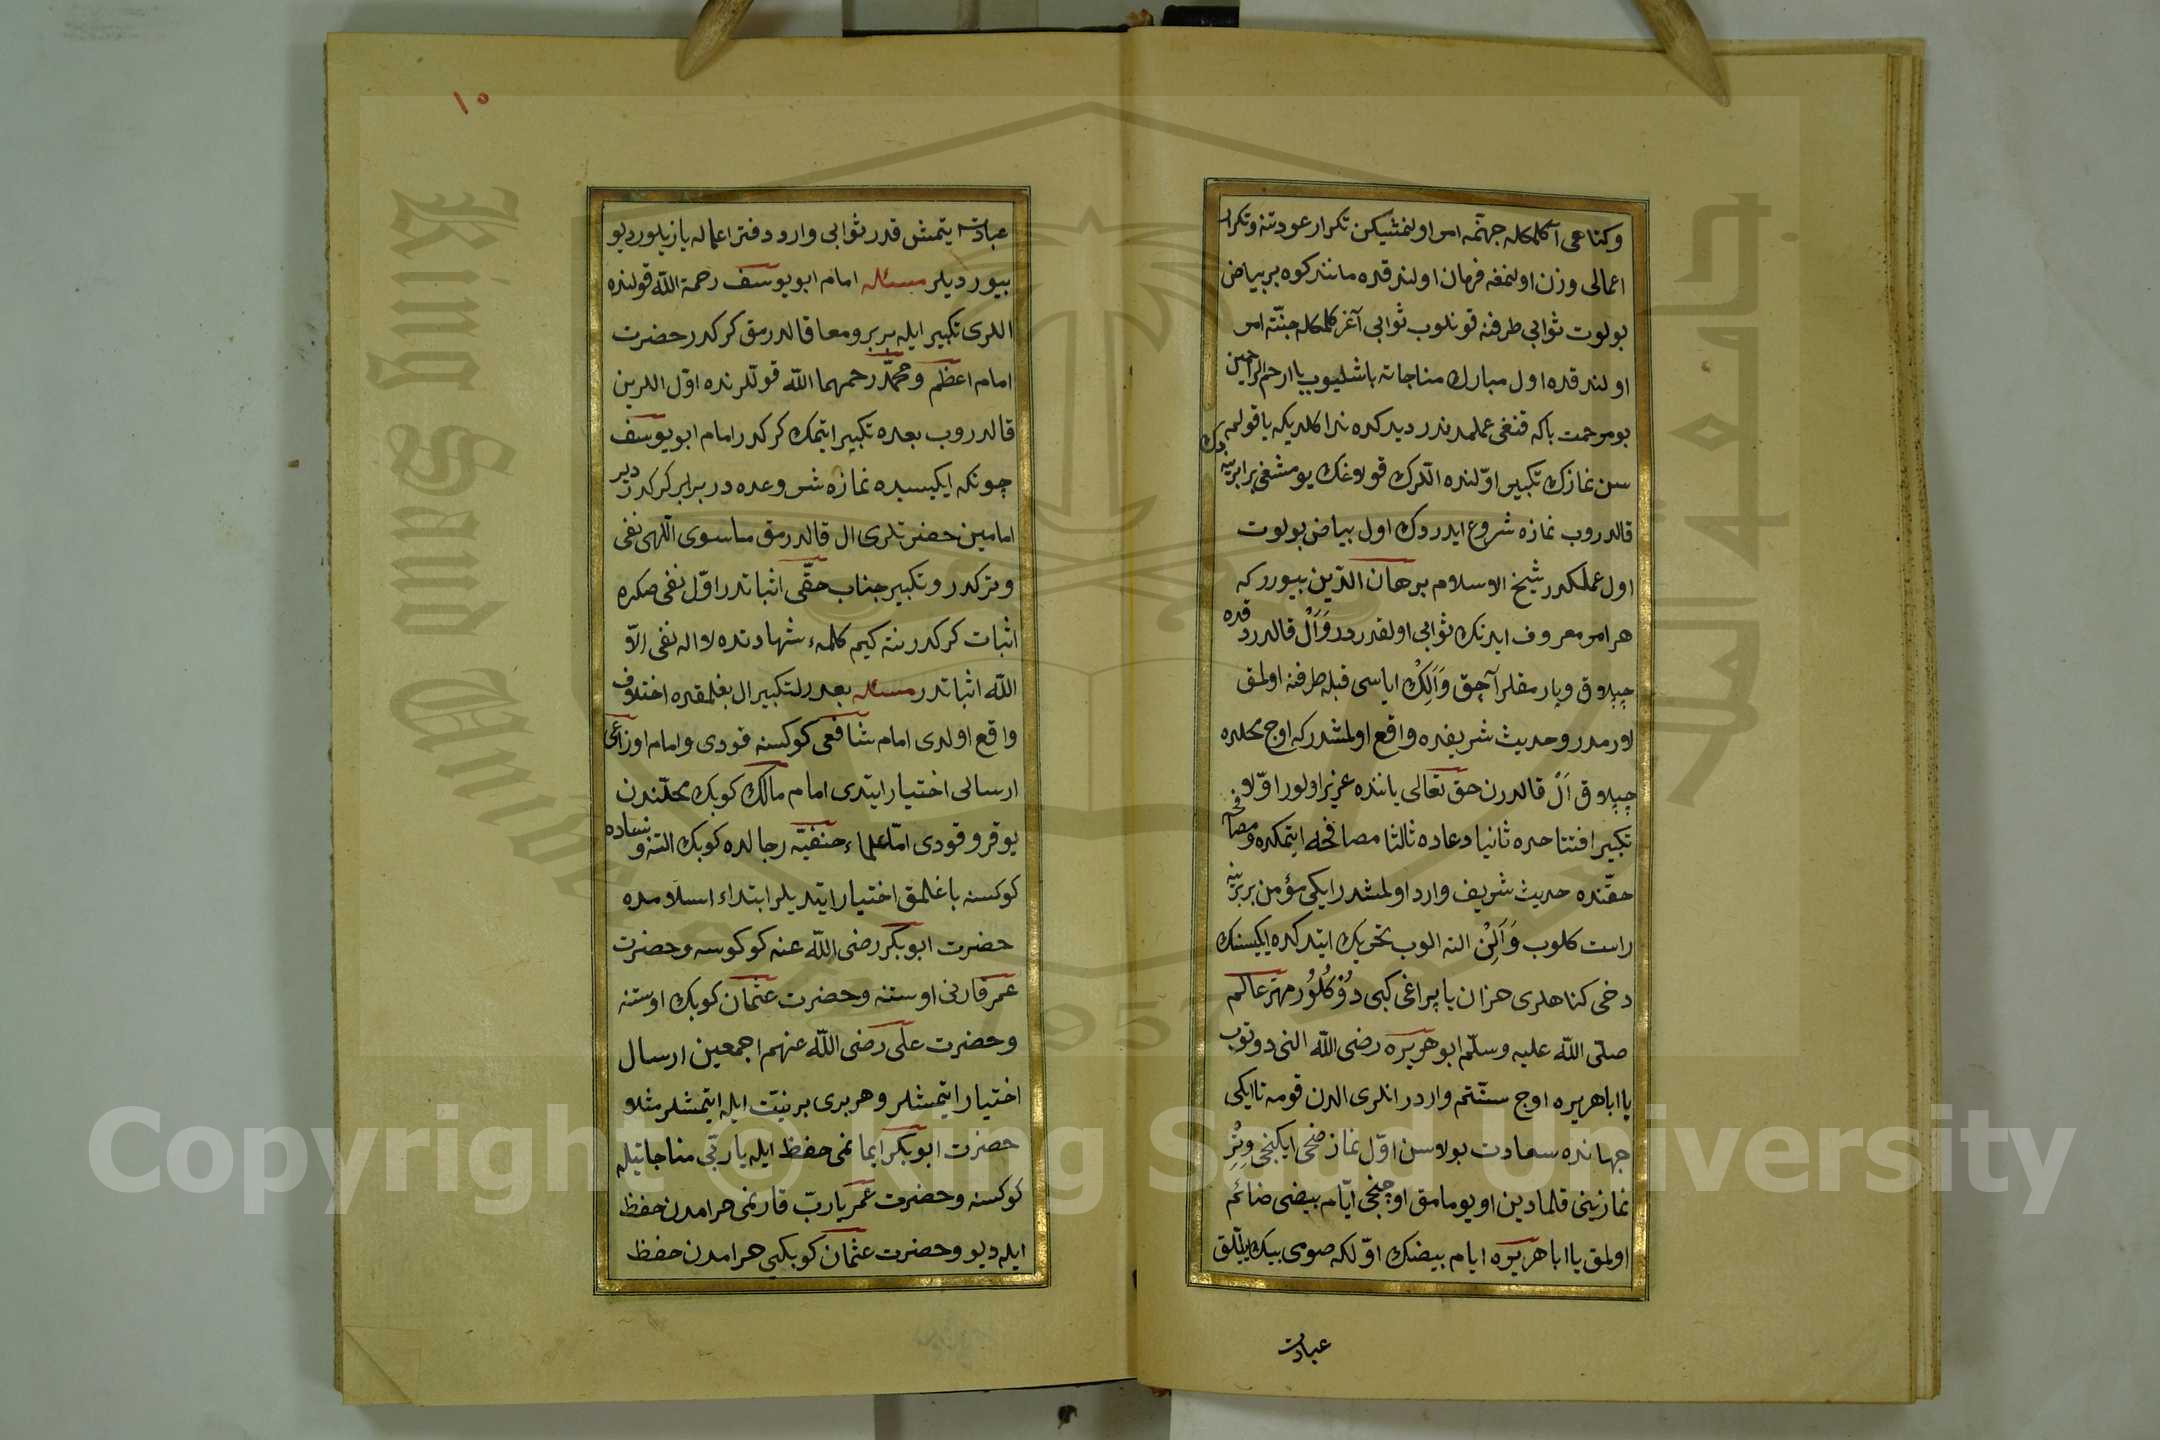 وكناهى آكلمكله جهنمه امر اولنمشيكن تكرار عودتنه وتكرار
اعمالى وزن اولنمغه فرمان اولندقده مانند كوه بر بياض
بولوت ثوابى طرفنه قونلوب ثوابى آغر كلمكله جنته امر
اولندقده اول مبارك مناجاته باشليوب يا ارحم الراحمين
بو مرحمت باكه قنغى عملمدندر ديدكده ندا كلديكه يا قولم
سن نمازك تكبير اولنده اللرك قولاغك يومشغى برابرينه دك
قالدروب نمازه شروع ايدردك اول بياض بولوت
اول عملكدر شيخ الاسلام برهان الدين بيوررکه
هر امر معروف ايدنك ثوابى اولقدردر وَاَلْ قالدردقده
چپلاق وپارمقلر آچق وَاَلِكْ اياسى قبله طرفنه اولمق
لازمدر وحديث شريفده واقع اولمشدركه اوچ محلده
چپلاق اَلْ قالدرن حق تعالى ياننده عزيز اولور اولا
تكبير افتتاحده ثانيا دعاده ثالثا مصافحه ايتمكده ومصافحه
حقنده حديث شريف وارد اولمشدر ايكى مؤمن بربرينه
راست كلوب وَاَلِنْ النه الوب تحريك ايتدكده ايكيسنك
دخى كناهلرى خزان ياپراغى كبى دُوُكُلُوُر مهتر عالم
صلى الله عليه وسلم ابو هريره رضى الله النى دوتوب
يا ابا هريره اوچ سنتم واردر انلرى الدن قومه تا ايكى
جهانده سعادت بولاسن اول نماز ضحى ايكنجى وِتْرِ
نمازينى قلمادين اويومامق اوچنجى ايام بيضى صائم
اولمق يا ابا هريره ايام بيضنك اولكه صومى بيك ييللق
عبادت
١٠
عبادت ايتمش قدر ثوابى وارد دفتر اعماله يازيلور ديو
بيورديلر مسئله امام ابو يوسف رحمة الله قولنده
اللرى تكبير ايله بربرو معا قالدرمق كركدر حضرت
امام اعظم ومحمد رحمهما الله قوللرنده اول اللرين
قالدروب بعده تكبير ايتمك كركدر امام ابو يوسف
چونكه ايكيسيده نمازه شروعده در برابر كركدر دير
امامين حضرتلرى ال قالدرمق ما سوى اللهى نفى
وتركدر وتكبير جناب حقى اثباتدر اول نفى صكره
اثبات كركدر نته كيم كلمهٔ شهادتده لا اله نفى الا
الله اثباتدر مسئله بعدد التكبير ال بغلمقده اختلاف
واقع اولدى امام شافعى كوكسنه قودى وامام اوزاعى
ارسالى اختيار ايتدى امام مالك كوبك محلندن
يوقرو قودى اما علماء حنفيه رجالده كوبك التنه ونساده
كوكسنه باغلمق اختيار ايتديلر ابتداء اسلامده
حضرت ابو بكر رضى الله عنه كوكوسه وحضرت
عمر قارنى اوستنه وحضرت عثمان كوبك اوستنه
وحضرت على رضى الله عنهم اجمعين ارسال
اختيار ايتمشلر وهربرى بر نيت ايله ايتمشلر مثلا
حضرت ابو بكر ايمانمى حفظ ايله يا ربى مناجاتيله
كوكسنه وحضرت عمر يا رب قارنمى حرامدن حفظ
ايله ديو وحضرت عثمان كوبكى حرامدن حفظ
King Saud University
جامعة الملك سعود
1957
Copyright © King Saud University